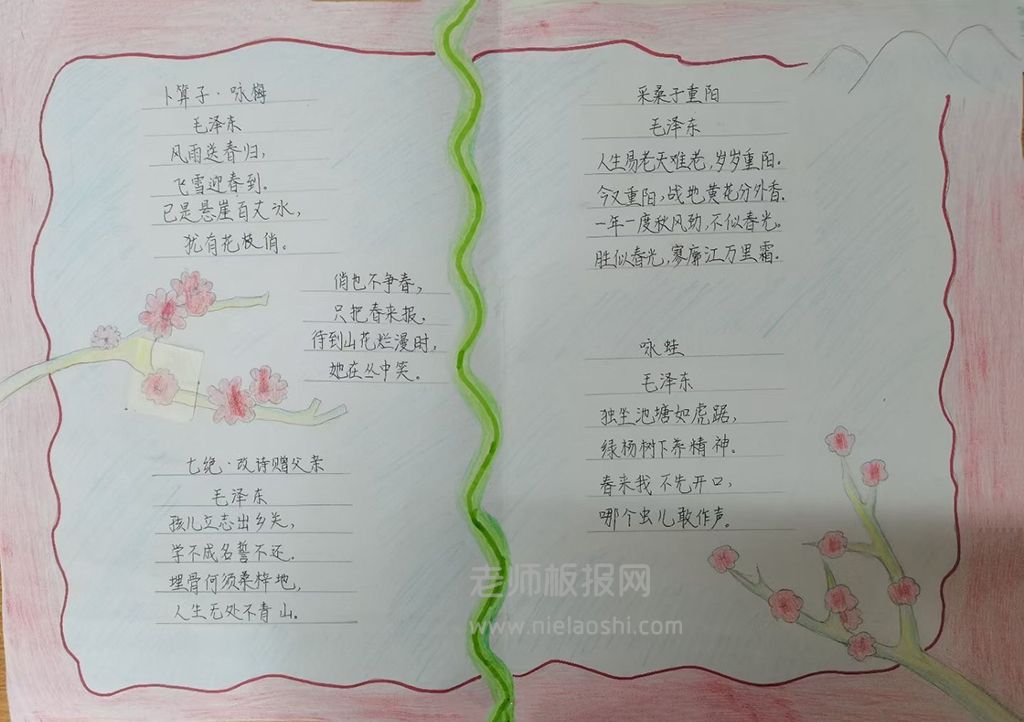 卜算子·咏梅
毛泽东
风雨送春归,
飞雪迎春到.
已是悬崖百丈冰,
犹有花枝俏。
俏也不争春,
只把春来报.
待到山花烂漫时,
她在丛中笑.
七绝·改诗赠父亲
毛泽东
孩儿立志出乡关,
学不成名誓不还.
埋骨何须桑梓地,
人生无处不青山.
采桑子重阳
毛泽东
人生易老天难老,岁岁重阳.
今又重阳,战地黄花分外香.
一年一度秋风劲,不似春光.
胜似春光,寥廓江万里霜.
咏蛙
毛泽东
独坐池塘如虎踞,
绿杨树下养精神.
春来我不先开口,
哪个虫儿敢作声.
老师板报网
www.nielaoshi.com